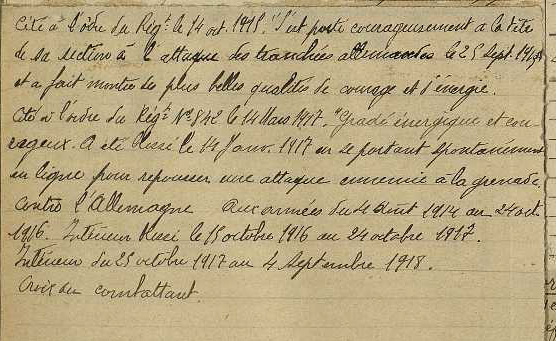 Cité à l'ordre du Régt. le 14 oct. 1915. "S'est porté courageusement à la tête
de sa section à l'attaque des tranchées allemandes le 25 Sept. 1915
et a fait montre des plus belles qualités de courage et d'énergie.
Cité à l'ordre du Régt. No 542 le 14 Mars 1917. "Gradé énergique et cou-
rageux. A été blessé le 14 Janv. 1917 en se portant spontanément
en ligne pour repousser une attaque ennemie à la grenade.
Contre l'Allemagne aux armées du 4 Août 1914 au 24 oct.
1916. Intérieur blessé le 15 octobre 1916 au 24 octobre 1917.
Intérieur du 25 octobre 1917 au 4 Septembre 1918.
Croix du combattant